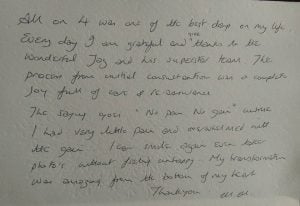 All on 4 was one of the best days on my life.
Every day I am grateful and give thanks to the
wonderful Jag and his superstar team. The
process from initial consultation was a complete
joy full of care & re-assurance
The saying goes "No pain No gain" untrue
I had very little pain and overwhelmed with
the gain. I can smile again even take
photo's without feeling unhappy. My transformation
was amazing from the bottom of my heart
Thankyou